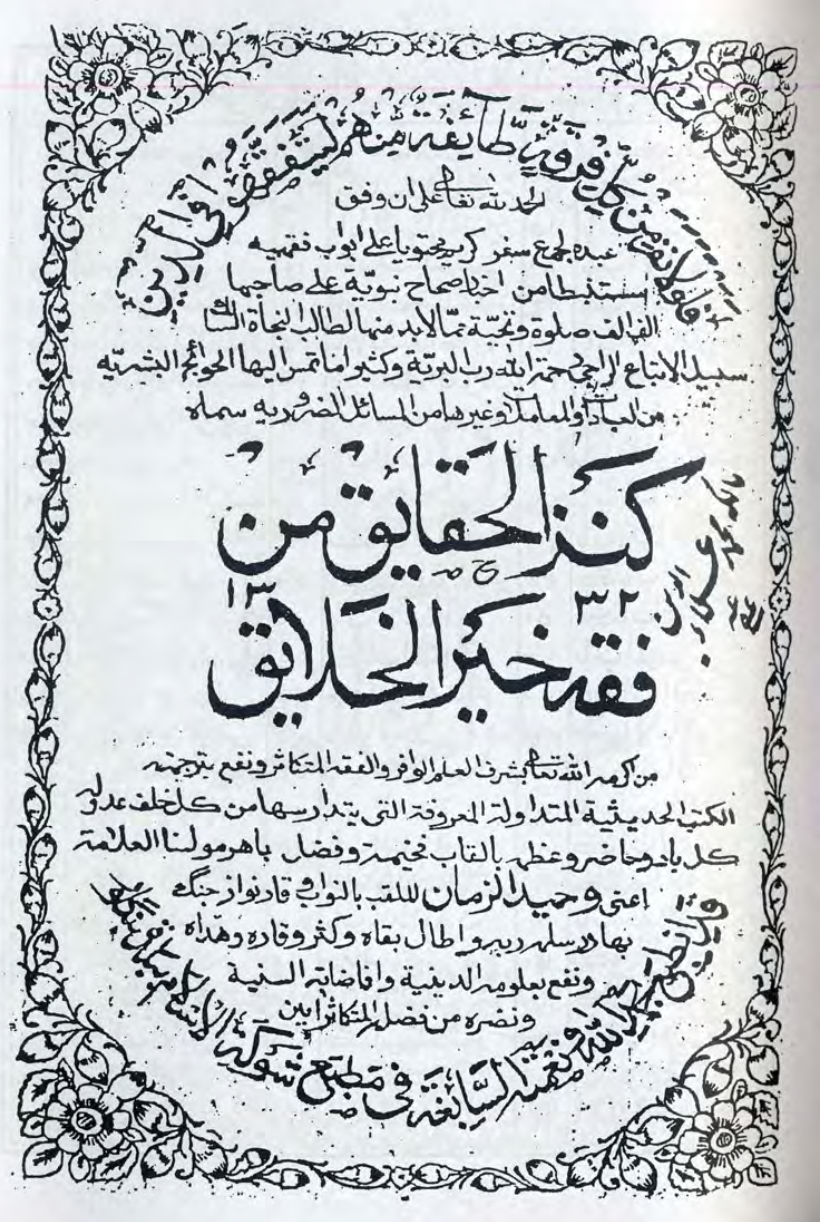 فلولا نفر من كل فرقة طآئفة منهم ليتفقهوا في الدين
الحمد لله تعالى على ان وفق
عبده لجمع سفر كريم محتويا على ابواب فقهيه
مستنبطا من اخبار صحاح نبويّة على صاحبها
الف الف صلوة وتحيّة ممّا لابد منها لطالب النجاة السالك
سبيل الاتباع الراجى رحمة الله رب البريّة وكثيرا ما تمس اليها الحوائج البشريّه
من العبادات والمعاملات وغيرها من المسائل الضروريه سماه
كنز الحقايق من
١٣ ٣٢
فقه خير الخلايق
من اكرمه الله تعالى بشرف العلم الوافر والفقه المتكاثر ونفع بترجمته
الكتب الحديثية المتداولة المعروفة التى يتدارسها من كل خلف عدوله
كل باد وحاضر وعظم بالقاب فخيمة وفضل باهر مولنا العلامة
اعنى وحيد الزمان الملقب بالنواب وقار نواز جنگ
بهادر سلمه ربه واطال بقاه وكثر وقاره وهداه
ونفع بعلومه الدينية وافاضاته السنية
ونضره من فضله المتكاثر ابين
قد انطبع بحمد الله ونعمته السابغة فى مطبع شوكة الاسلام ببلدة بنگلور
مالكه محمد
الدين